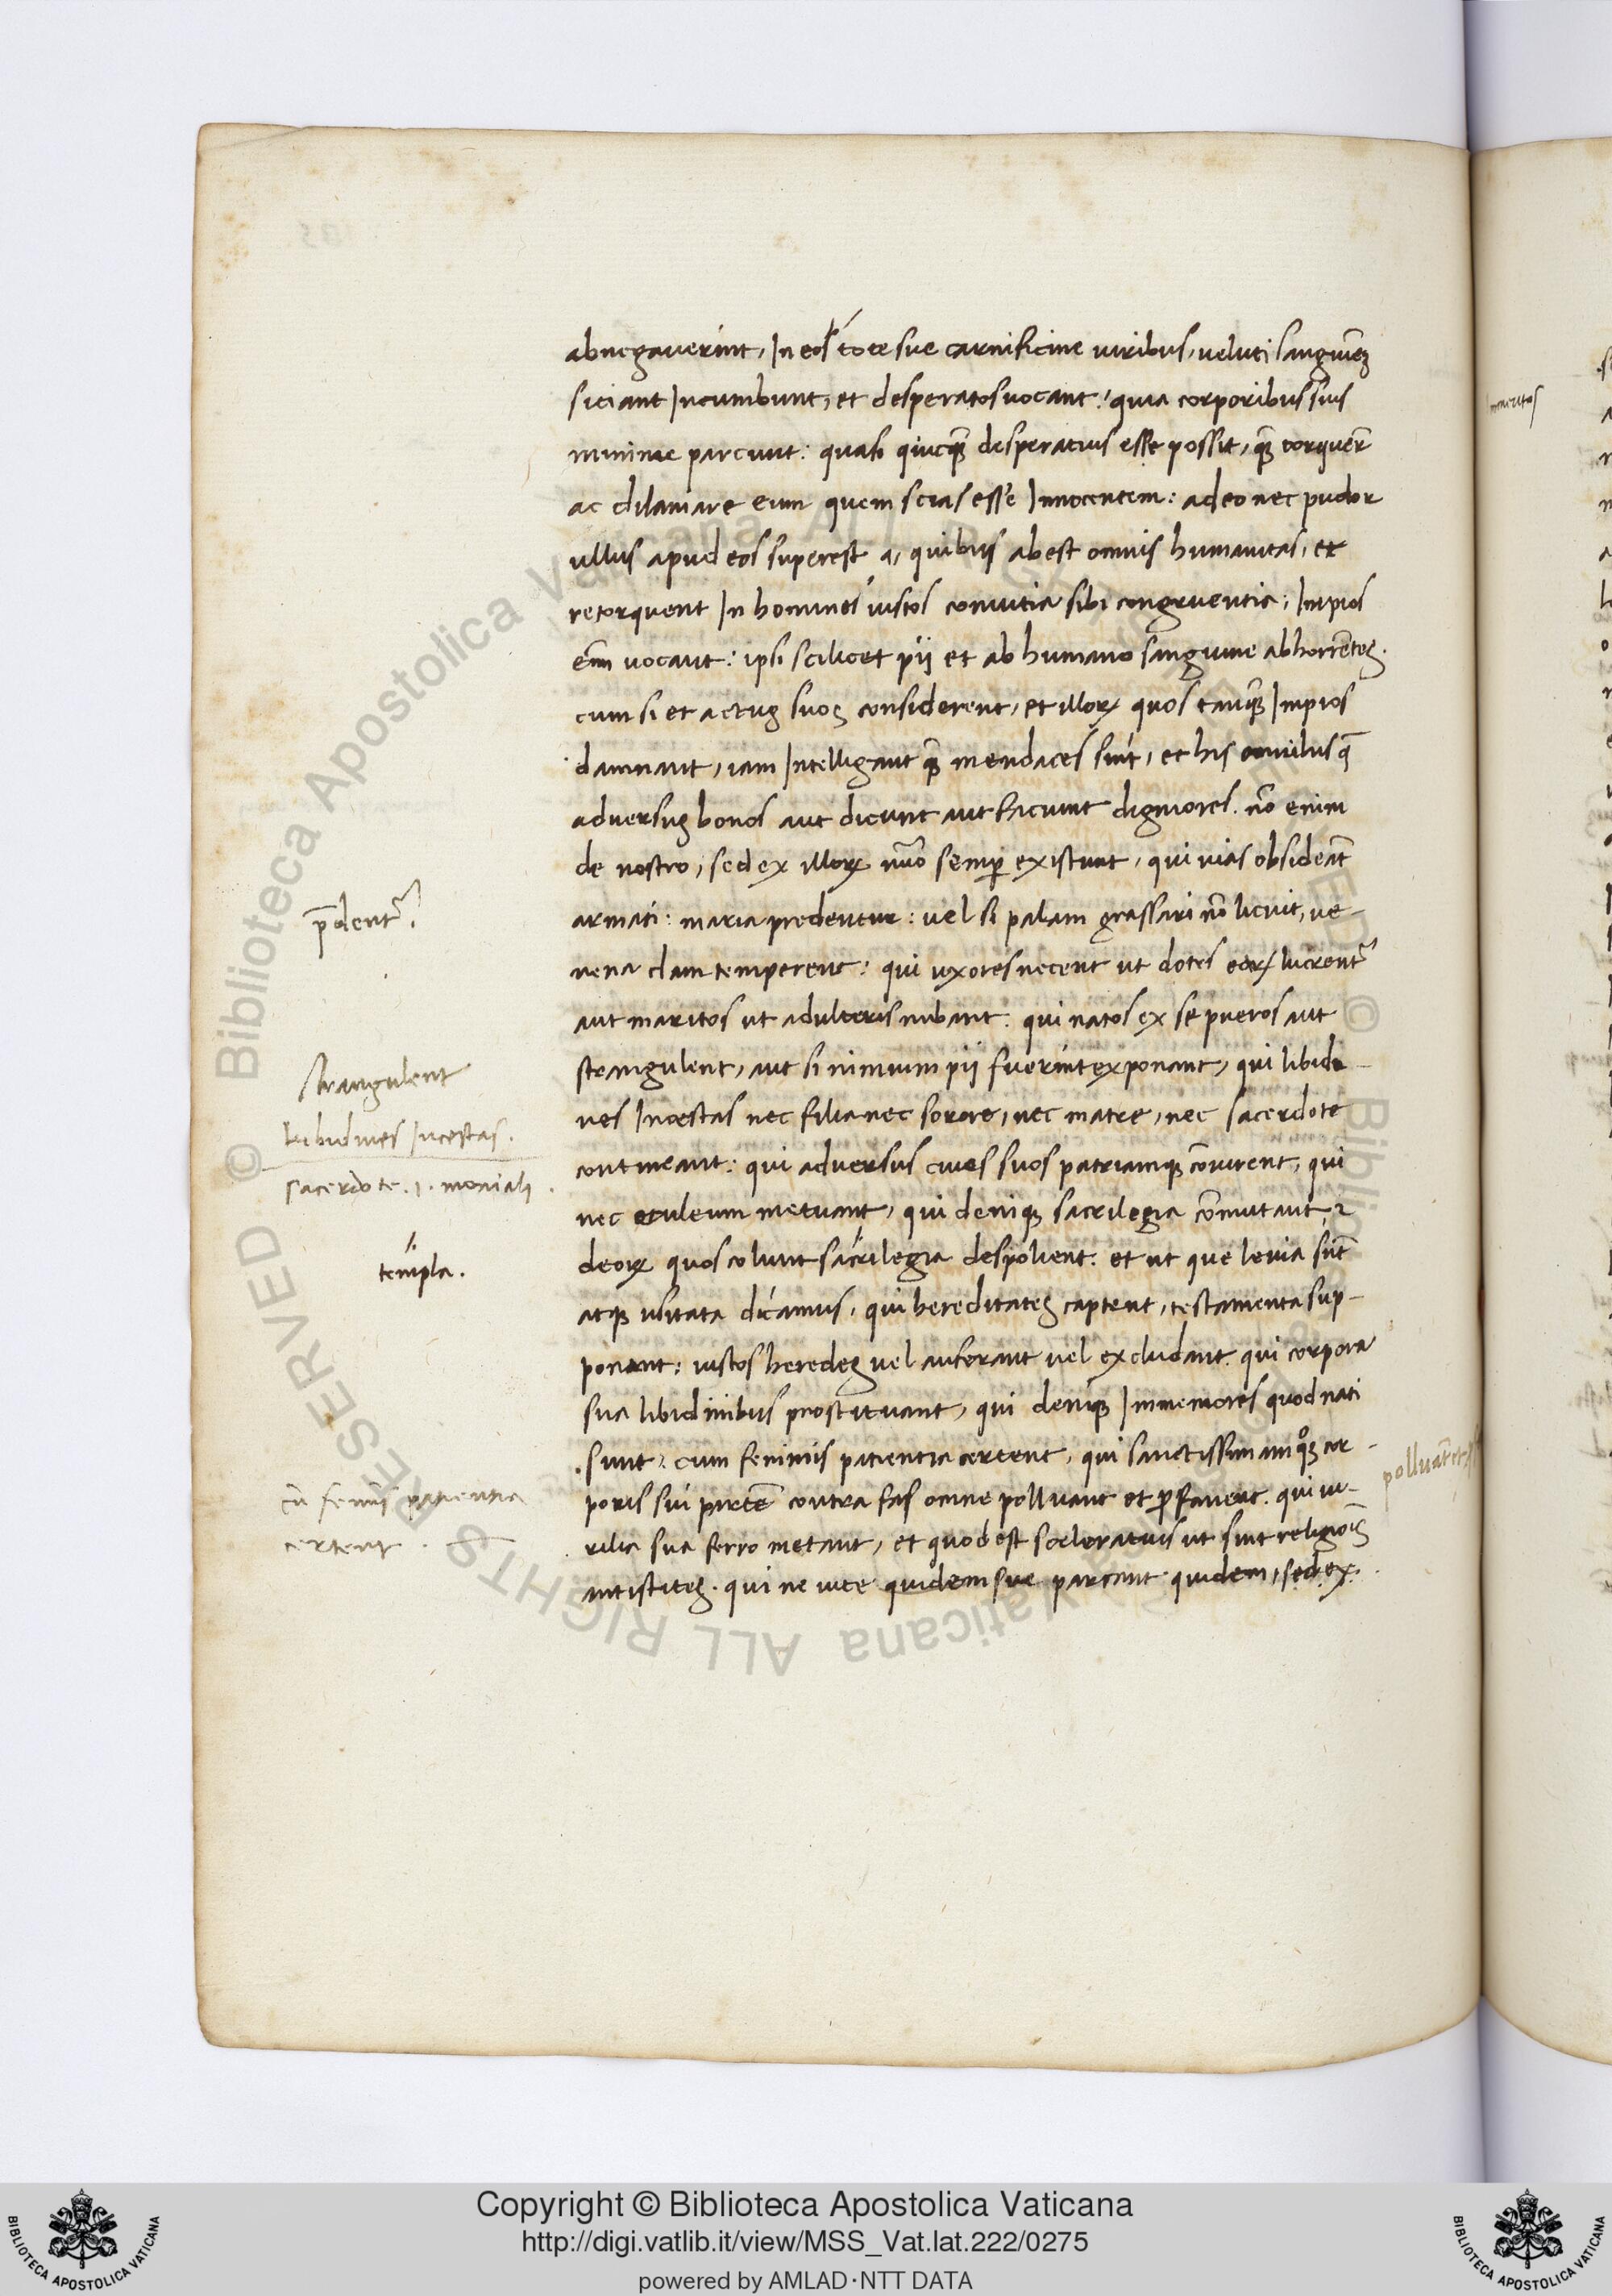 abnegauerint, In eos tote sue carnificine uiribus, ueluti sanguinẽ
siciant Incumbunt, et desperatos uocant: quia corporibus suis
minime parcunt: quasi quicq̃ desperatius esse possit, q̃ torquer̃
ac dilaniare eum quem scias esse Innocentem: adeo nec pudor
ullus apud eos superest a, quibus abest omnis humanitas, et
retorquent In homines iustos conuitia sibi congruentia; Impios
enĩ uocant: ipsi scilicet pij et ab humano sanguine abhorrẽtes.
cum si et actus suos considerent, et illoꝝ quos tanq̃ Impios
damnant, iam Intelligant q̃ mendaces sint, et his omnibus q̃
aduersus bonos aut dicunt aut faciunt digniores. nõ enim
de nostro, sed ex illoꝝ nũo semp̱ existunt, qui uias obsideãt
armati: maria predentur: uel si palam grassari nõ licuit, ue-
nena clam temperent: qui uxores necent ut dotes eaꝝ lucrent᷑
aut maritos ut adulteris nubant: qui natos ex se pueros aut
strangulent, aut si nimium pij fuerint exponant, qui libidi-
nes Incestas nec filia nec sorore, nec matre, nec sacerdote
contineant: qui aduersus ciues suos patriamqꝫ coniurent, qui
nec eculeum metuant, qui deniqꝫ sacrilegia cõmutant, ⁊
deoꝝ quos colunt sacrilegia despolient: et ut que leuia sũt
atqꝫ usitata dicamus, qui hereditates captent, testamenta sup-
ponant: iustos heredes uel auferant uel excludant. qui corpora
sua libidinibus prostituant, qui deniqꝫ Immemores quod nati
sunt, cum feminis patientia certent, qui sanctissimam qꝫ cor-
poris sui partẽ contra fas omne polluant et ꝓfanent. qui ui-
rilia sua ferro metant, et quod est sceleratius ut sint religiõis
antistites. qui ne uite quidem sue parcant quidem, sed ex
p̃dent᷑.
strangulent
libidines Incestas.
sacerdote .i. moniali
templa.
cũ feminis patientia
certent.
polluãt et
Copyright © Biblioteca Apostolica Vaticana
http://digi.vatlib.it/view/MSS_Vat.lat.222/0275
powered by AMLAD·NTT DATA
BIBLIOTECA APOSTOLICA VATICANA
BIBLIOTECA APOSTOLICA VATICANA
© Biblioteca Apostolica Vaticana ALL RIGHTS RESERVED